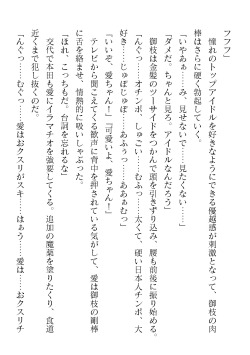 フフフ」
　憧れのトップアイドルを好きなようにできる優越感が刺激となって、御枝の肉
棒はさらに硬く勃起していく。
「いやあぁ……み、見せないで……見たくない……」
「ダメだ。ちゃんと見ろ。アイドルなんだろう」
　御枝は金髪のツーサイドをつかんで頭を引きずり込み、腰も前後に振り始める。
「んぐっ……オチンポ、しゅごい……むふっ……太くて、硬い日本人チンポ、大
好き……じゅぽじゅぽ……あふぅっ……ああぁむっ」
「いいぞ、愛ちゃん！」「可愛いよ、愛ちゃん！」
　テレビから聞こえてくる歓声に背中を押されている気がして、愛は御枝の剛棒
に舌を絡ませ、情熱的に吸いしゃぶった。
「ほれ、こっちもだ。台詞を忘れるな」
　交代で本田も愛にイラマチオを強要してくる。追加の魔薬を塗りたくり、食道
近くまで犯し抜くのだ。
「んぐっ……むぐっ……愛はおクスリがスキ……はぁう……愛は……おクスリチ